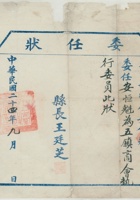 委任狀
委任安恒魁為五鎮商會執
行委員此狀
縣長王廷芝
中華民國二十四年九月 日